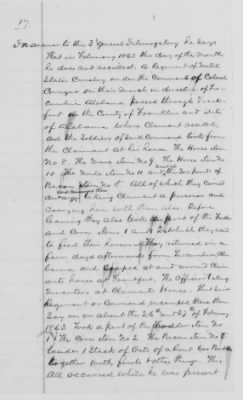 17
In answer to this 3rd general Interrogatory he says
That in February 1863 the day of the month
he does not recollect, a Regiment of United
States Cavalry under the Command of Colonel
on their march in direction of
Alabama passed through
fort in the County of Franklin and State
of Alabama where Claimant resided
and the Soldiers of said Command took from
the Claimant at his house The Horse Item
No 8. The Mare Item No 9. The Horse Item No
10. The Mule Item No 11 and the pounds of
Bacon Item No 5 All of which they carried
away taking Claimant a prisoner and
carrying him with them also Before
leaving they also took a part of the Fodder
and Corn Items 1 and 2 which they used
to feed their horses They returned in a
few days afterwards from Tuscumbia the
same and camped at and around Claim
ants house at Frankfort. The Officer being
in Claimants House That said
Regiment or Command encamped there this
day on or about the 26th and 27th of February
1863. Took a part of the Fodder Item No
1 The Corn Item No 2. The Bacon Item No
1 Stack of Oats of about
together with fresh other things. This
All occurred while he was present